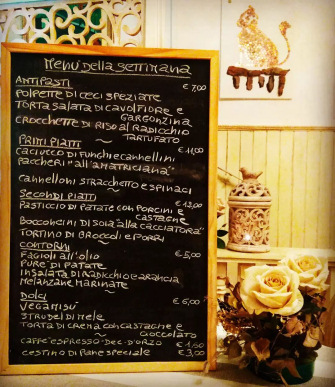 Menù della settimana
ANTIPASTI € 7,00
POLPETTE DI CECI SPEZIATE
TORTA SALATA DI CAVOLFIORE E
GARGONZINA
CROCCHETTE DI RISO AL RADICCHIO
TARTUFATO
PRIMI PIATTI € 11,00
CACIUCCO DI FUNGHI E CANNELLINI
PACCHERI "ALL'AMATRICIANA"
CANNELLONI STRACCHETTO E SPINACI
SECONDI PIATTI € 12,00
PASTICCIO DI PATATE CON PORCINI E
CASTAGNE
BOCCONCINI DI SOIA "ALLA CACCIATORA"
TORTINO DI BROCCOLI E PORRI
CONTORNI € 5,00
FAGIOLI ALL'OLIO
PURÈ DI PATATE
INSALATA DI RADICCHIO E ARANCIA
MELANZANE MARINATE
DOLCI € 6,00
VEGAMISÙ
STRUDEL DI MELE
TORTA DI CREMA CON CASTAGNE E
CIOCCOLATO
CAFFÈ ESPRESSO-DEC-D'ORZO € 1,60
CESTINO DI PANE SPECIALE € 3,00